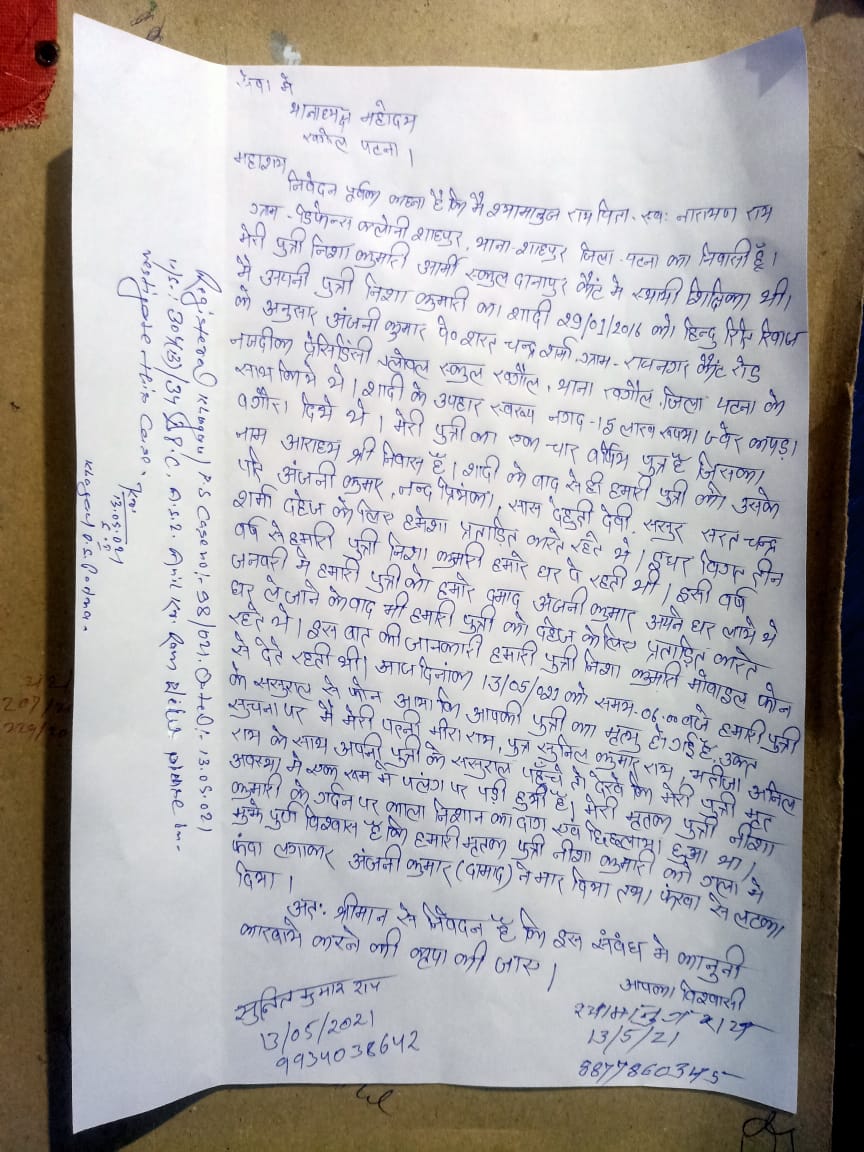 सेवा मे
थानाध्यक्ष महोदय
खगौल पटना।
महाशय
निवेदन पूर्वक कहना है कि मै श्यामानुज राय पिता- स्व: नारायण राय
ग्राम- डिफेन्स कलोनी शाहपुर, थाना- शाहपुर जिला- पटना का निवासी हूँ।
मेरी पुत्री निशा कुमारी आर्मी स्कुल दानापुर कैंट मे स्थायी शिक्षिका थी।
मै अपनी पुत्री निशा कुमारी का शादी 29/01/2016 को हिन्दु रिति रिवाज
के अनुसार अंजनी कुमार पे० शरत चन्द्र शर्मा ग्राम- रामनगर कैंट रोड
नजदीक प्रेसिडेंसी ग्लोबल स्कुल खगौल, थाना खगौल, जिला पटना के
साथ किये थे। शादी के उपहार स्वरूप नगद- 15 लाख रूपया ज्वेर कपड़ा
वगैरा दिये थे। मेरी पुत्री का एक चार वर्षिय पुत्र है जिसका
नाम आराध्य श्री निवास है। शादी के बाद से ही हमारी पुत्री को उसके
पति अंजनी कुमार, नन्द प्रियंका, सास देहुती देवी, ससुर सरत चन्द्र
शर्मा दहेज के लिए हमेशा प्रताड़ित करते रहते थे। इधर विगत तीन
वर्ष से हमारी पुत्री निशा कुमारी हमारे घर पे रहती थी। इसी वर्ष
जनवरी मे हमारी पुत्री को हमारे दमाद अंजनी कुमार अपने घर लाये थे
घर ले जाने के बाद भी हमारी पुत्री को दहेज के लिए प्रताड़ित करते
रहते थे। इस बात की जानकारी हमारी पुत्री निशा कुमारी मोबाइल फोन
से देते रहती थी। आज दिनांक 13/05/021 को समय- 06.00 बजे हमारी पुत्री
के ससुराल से फोन आया कि आपकी पुत्री का मृत्यु हो गई है, उक्त
सुचना पर मै मेरी पत्नी मीरा राय, पुत्र सुनिल कुमार राय, भतीजा अनिल
राय के साथ अपनी पुत्री के ससुराल पहुँचे तो देखे कि मेरी पुत्री मृत
अवस्था मे एक रूम मे पलंग पर पड़ी हुयी है। मेरी मृतक पुत्री नीशा
कुमारी के गर्दन पर काला निशान का दाग एवं छिलाया हुआ था।
मुझे पुर्ण विश्वास है कि हमारी मृतक पुत्री नीशा कुमारी को गला मे
फंदा लगाकर अंजनी कुमार (दामाद) ने मार दिया तथा पंखा से लटका
दिया।
अतः श्रीमान से निवेदन है कि इस संबंध मे कानुनी
कारवाय करने की कृपा की जाए।
आपका विश्वासी
श्यामानुज राय
13/5/21
8877860345
सुनिल कुमार राय
13/05/2021
9934038642
Registered Khagaul P.S Case no: 98/021. Dated: 13.05.021
u/s: 304(B)/34 I.P.C. A.S.I. Anil Kr. Ram will please in-
vestigate this case.
13.05.021
Khagaul P.S. Patna.